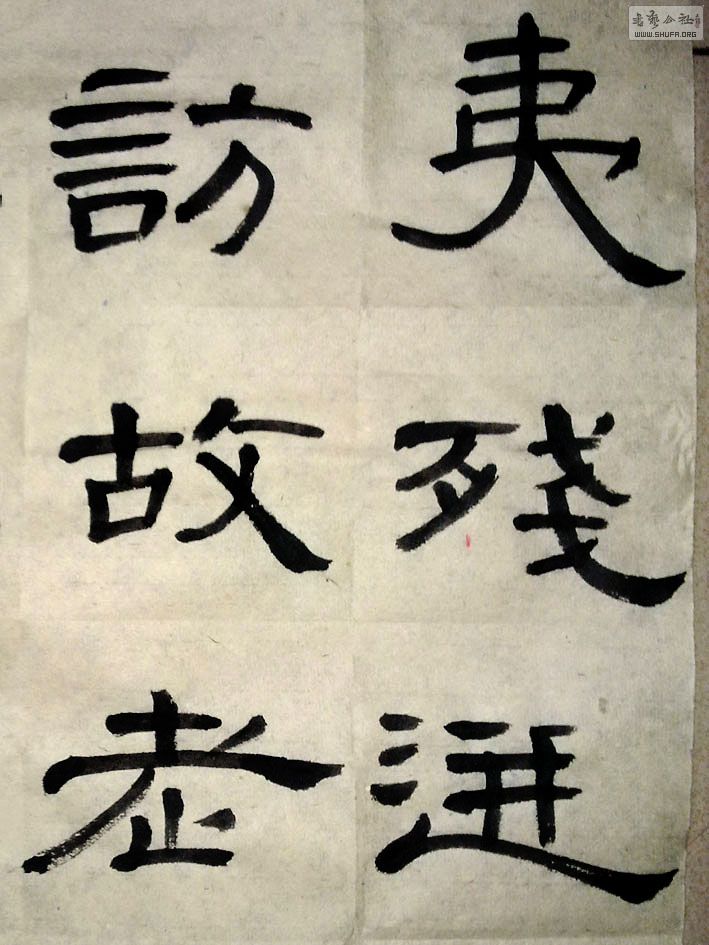 夷殘迸
訪故老
書藝公社
WWW.SHUFA.ORG